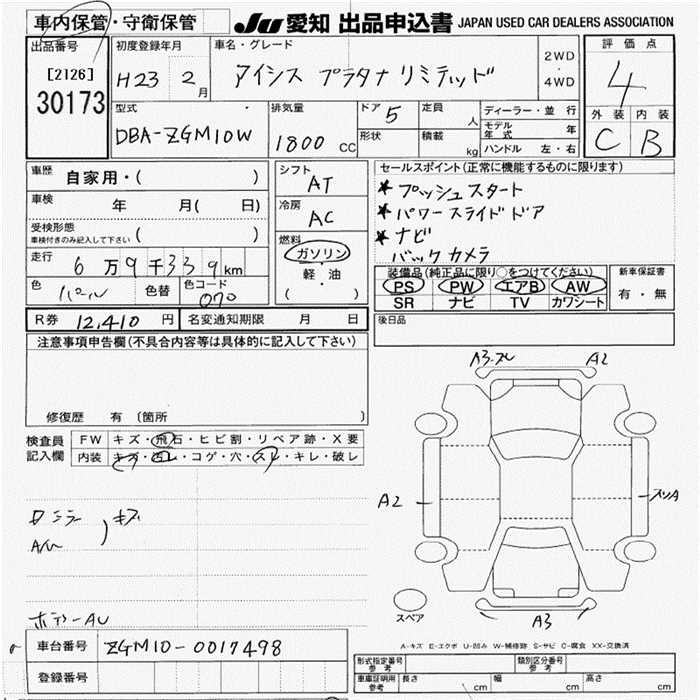 車内保管・守衛保管
JU 愛知 出品申込書 JAPAN USED CAR DEALERS ASSOCIATION
出品番号
[2126]
30173
初度登録年月
H23 2月
車名・グレード
アイシス プラタナ リミテッド
2WD
・
4WD
評価点
4
外装 内装
C B
型式
DBA-ZGM10W
排気量
1800 CC
ドア 5
形状
定員 人
積載 kg
ディーラー・並行
モデル年式 年
ハンドル 左・右
車歴 自家用・( )
車検 年 月( 日)
受検形態
車検付きのみ記入して下さい ( )
走行 6万9千339km
色 パール 色替 色コード 070
シフト
AT
冷房
AC
燃料
ガソリン
軽・油
( )
セールスポイント(正常に機能するものに限ります)
★プッシュスタート
★パワースライドドア
★ナビ
バックカメラ
装備品(純正品に限り○をつけてください)
PS PW エアB AW
SR ナビ TV カワシート
新車保証書
有・無
R券 12,410円 名変通知期限 月 日
後日品
注意事項申告欄(不具合内容等は具体的に記入して下さい)
修復歴 有 〔箇所 〕
検査員記入欄
FW キズ・飛石・ヒビ割・リペア跡・X要
内装 キズ・凹レ・コゲ・穴・スレ・キレ・破レ
ロミラー キズ
A/W
ボデーAU
A3 A2
A2
スリA
スペア
A3
A-キズ E-エクボ U-凹み W-補修跡 S-サビ C-腐食 XX-交換済
車台番号 ZGM10-0017498
登録番号
形式指定番号 参考
類別区分番号 参考
車庫証明用 参考 長さ cm 幅 cm 高さ cm